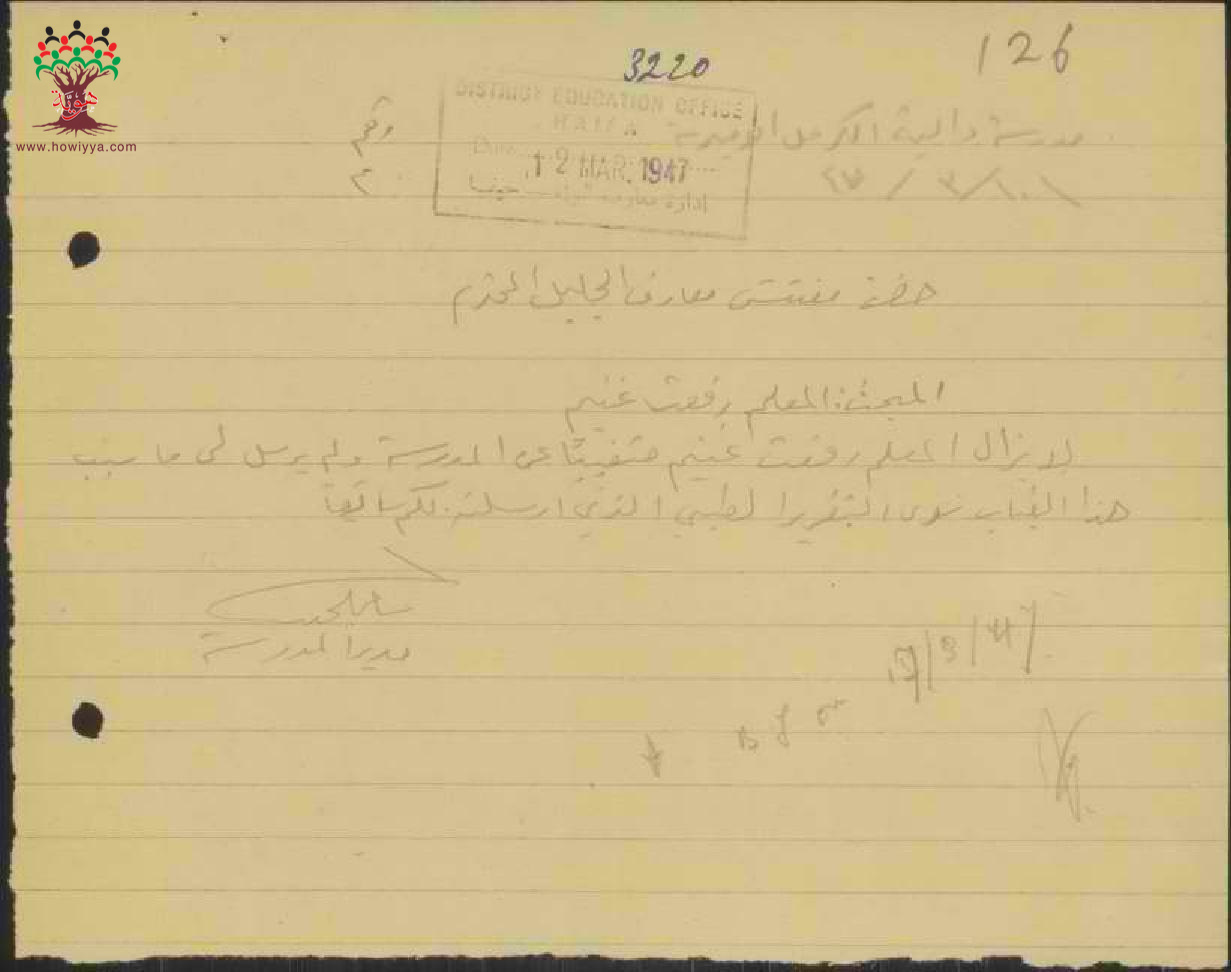 126
3220
DISTRICT EDUCATION OFFICE
HAIFA
Date 12 MAR. 1947
ادارة معارف لواء حيفا
هوية
www.howiyya.com
مدرسة دالية الكرمل الاميرية
رقم
حضرة مفتش معارف الجليل المحترم
المبحث: المعلم رفعت غنيم
لا يزال المعلم رفعت غنيم متغيبًا عن المدرسة ولم يرسل لي ما يسبب
هذا الغياب سوى التقرير الطبي الذي ارسلته لكم سابقا
مدير المدرسة